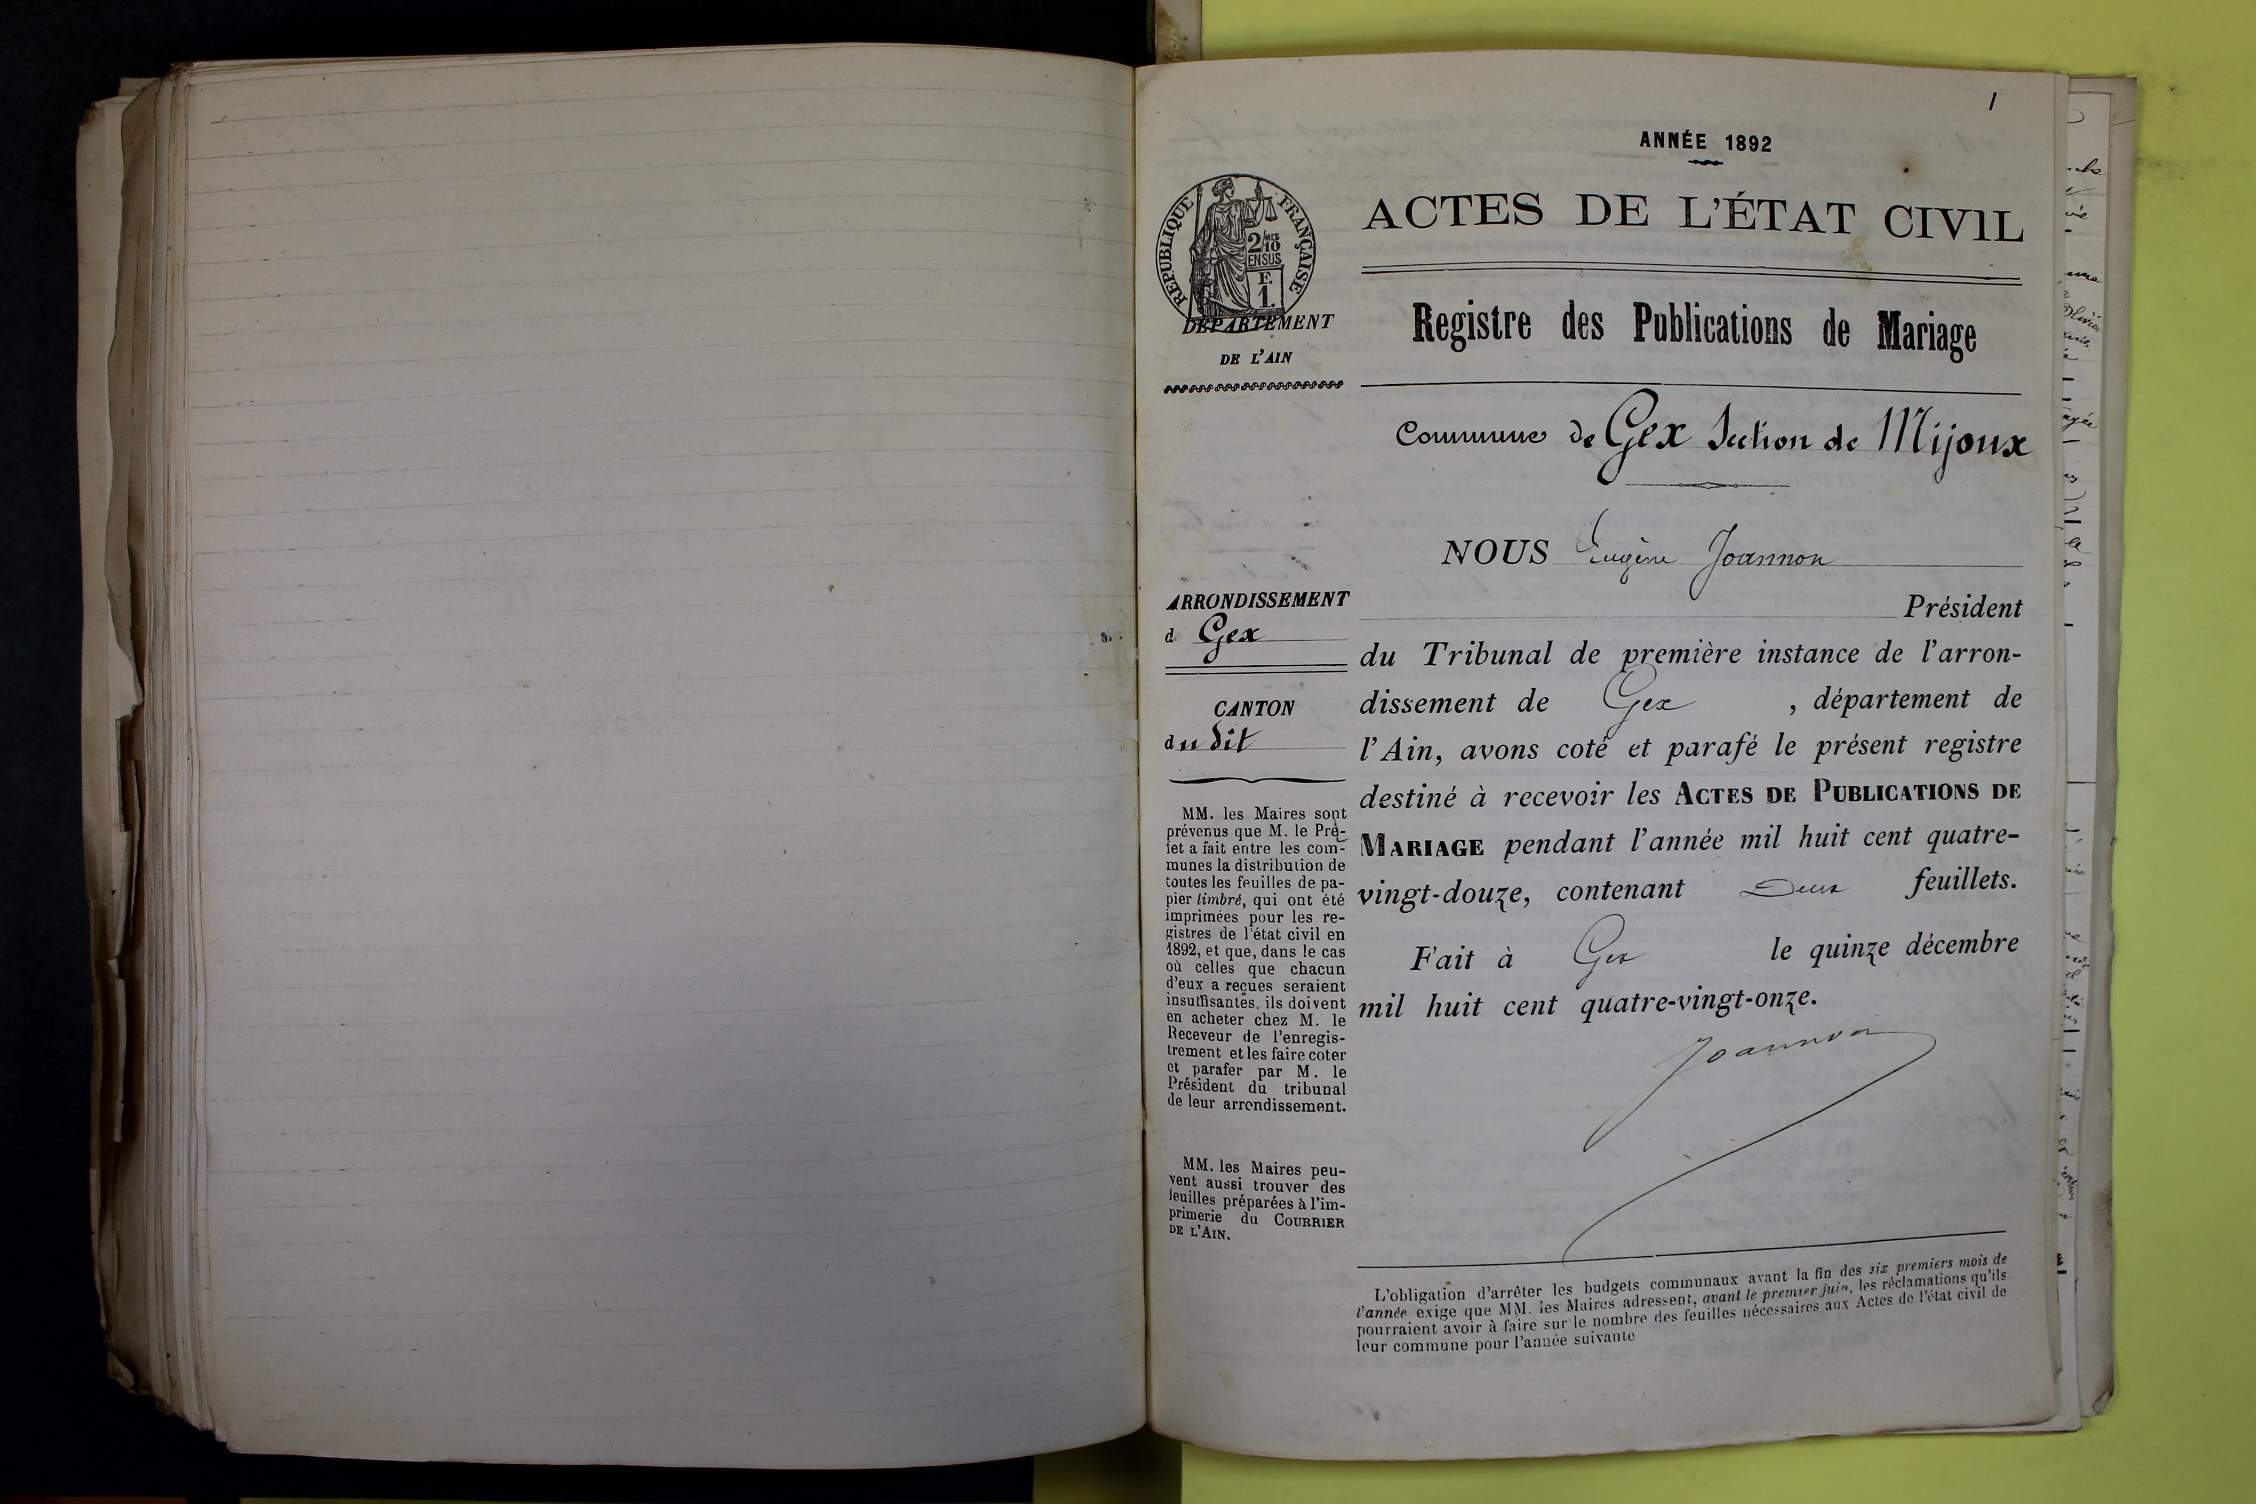 1
ANNÉE 1892
RÉPUBLIQUE FRANÇAISE
2/10MES
EN SUS
F.
1.
DÉPARTEMENT
DE L'AIN
ACTES DE L'ÉTAT CIVIL
Registre des Publications de Mariage
Commune de Gex Section de Mijoux
ARRONDISSEMENT
d Gex
CANTON
du dit
MM. les Maires sont
prévenus que M. le Pré-
fet a fait entre les com-
munes la distribution de
toutes les feuilles de pa-
pier timbré, qui ont été
imprimées pour les re-
gistres de l'état civil en
1892, et que, dans le cas
où celles que chacun
d'eux a reçues seraient
insuffisantes, ils doivent
en acheter chez M. le
Receveur de l'enregis-
trement et les faire coter
et parafer par M. le
Président du tribunal
de leur arrondissement.
MM. les Maires peu-
vent aussi trouver des
feuilles préparées à l'im-
primerie du COURRIER
DE L'AIN.
NOUS Eugène Joannon
Président
du Tribunal de première instance de l'arron-
dissement de Gex , département de
l'Ain, avons coté et parafé le présent registre
destiné à recevoir les ACTES DE PUBLICATIONS DE
MARIAGE pendant l'année mil huit cent quatre-
vingt-douze, contenant Deux feuillets.
Fait à Gex le quinze décembre
mil huit cent quatre-vingt-onze.
Joannon
L'obligation d'arrêter les budgets communaux avant la fin des six premiers mois de
l'année exige que MM. les Maires adressent, avant le premier juin, les réclamations qu'ils
pourraient avoir à faire sur le nombre des feuilles nécessaires aux Actes de l'état civil de
leur commune pour l'année suivante